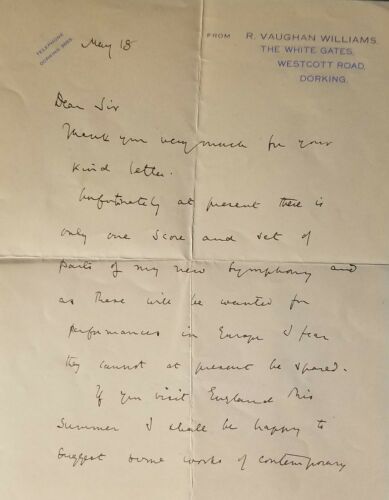 TELEPHONE
DORKING 3055.
May 18
FROM R. VAUGHAN WILLIAMS,
THE WHITE GATES,
WESTCOTT ROAD,
DORKING.
Dear Sir
Thank you very much for your
kind letter.
Unfortunately at present there is
only one score and set of
parts of my new Symphony and
as these will be wanted for
performances in Europe I fear
they cannot at present be spared.
If you visit England this
summer I shall be happy to
suggest some works of contemporary